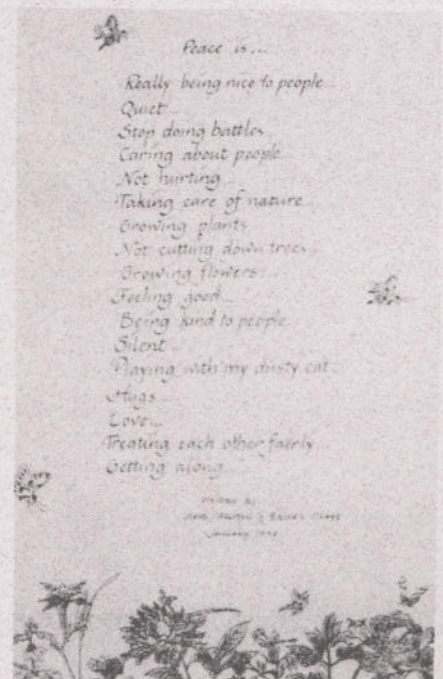 Peace is...
Really being nice to people...
Quiet...
Stop doing battles...
Caring about people...
Not hurting...
Taking care of nature...
Growing plants...
Not cutting down trees...
Growing flowers...
Feeling good...
Being kind to people...
Silent...
Playing with my dusty cat...
Hugs...
Love...
Treating each other fairly...
Getting along...
Written by
January